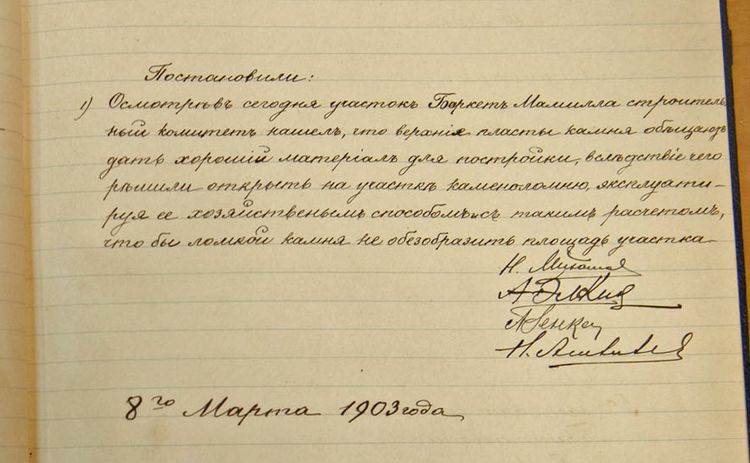 Постановили:
1) Осмотрѣвъ сегодня участокъ Биркетъ Мамилла строитель
ный комитетъ нашелъ, что верхніе пласты камня обѣщаютъ
дать хорошій матеріалъ для постройки, вслѣдствіе чего
рѣшили открыть на участкѣ каменоломню, эксплуати-
руя ее хозяйственымъ способомъ и съ такимъ расчетомъ,
что бы ломкой камня не обезобразить площадь участка.
Н.
А.
Н.
8го Марта 1903 года